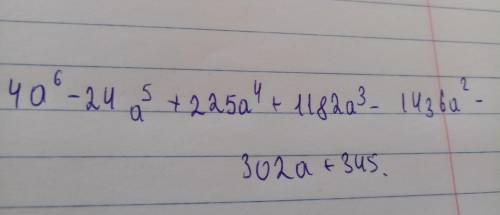 4a⁶ - 24a⁵ + 225a⁴ + 1182a³ - 1436a² -
302a + 345.